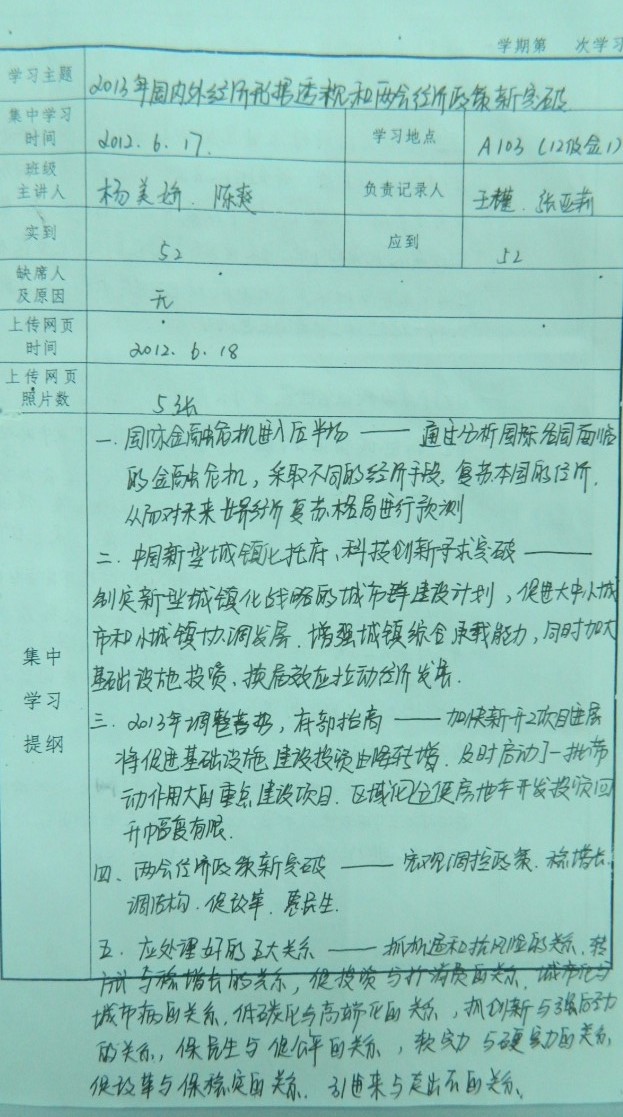 学期第 次学习
学习主题 2013年国内外经济形势透视和两会经济政策新突破
集中学习时间 2012.6.17. 学习地点 A103（12级金1）
班级主讲人 杨美娇、陈爽 负责记录人 王槿、张亚莉
实到 52 应到 52
缺席人及原因 无
上传网页时间 2012.6.18
上传网页照片数 5张
集中学习提纲
一、国际金融危机进入后半场 —— 通过分析国际各国面临
的金融危机，采取不同的经济手段，复苏本国的经济，
从而对未来世界经济复苏格局进行预测
二、中国新型城镇化托底、科技创新寻求突破 ——
制定新型城镇化战略的城市群建设计划，促进大中小城
市和小城镇协调发展、增强城镇综合承载能力，同时加大
基础设施投资、换届效应拉动经济发展.
三、2013年调整蓄势，底部抬高 —— 加快新开工项目进展
将促进基础设施建设投资由降转增，及时启动了一批带
动作用大的重点建设项目. 区域化仓促房地产开发投资回
升幅度有限.
四、两会经济政策新突破 —— 宏观调控政策、稳增长
调结构、促改革、惠民生.
五、应处理好的五大关系 —— 抓机遇和抗风险的关系，转
方式与稳增长的关系，促投资与扩消费的关系，城市化与
城市病的关系，低碳化与高碳化的关系，抓创新与强后劲
的关系，保民生与促公平的关系，软实力与硬实力的关系
促改革与保稳定的关系、引进来与走出去的关系.